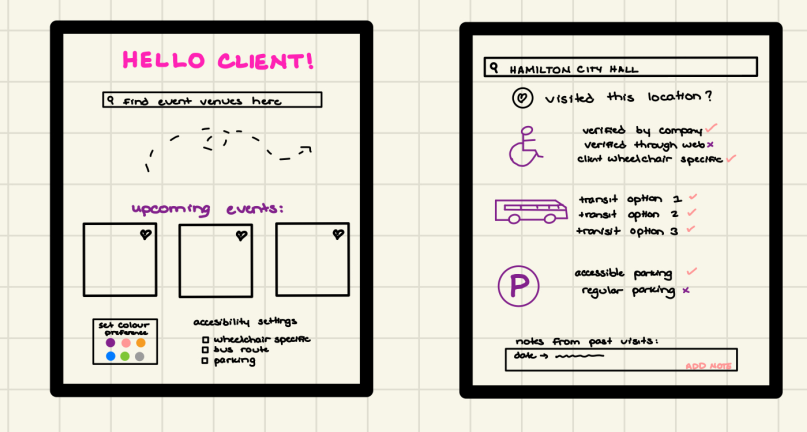 HELLO CLIENT!
find event venues here
upcoming events:
set colour
preference
accesibility settings
wheelchair specific
bus route
parking
HAMILTON CITY HALL
visited this location?
verified by company
verified through web
client wheelchair specific
transit option 1
transit option 2
transit option 3
P
accessible parking
regular parking
notes from past visits:
date →
ADD NOTE